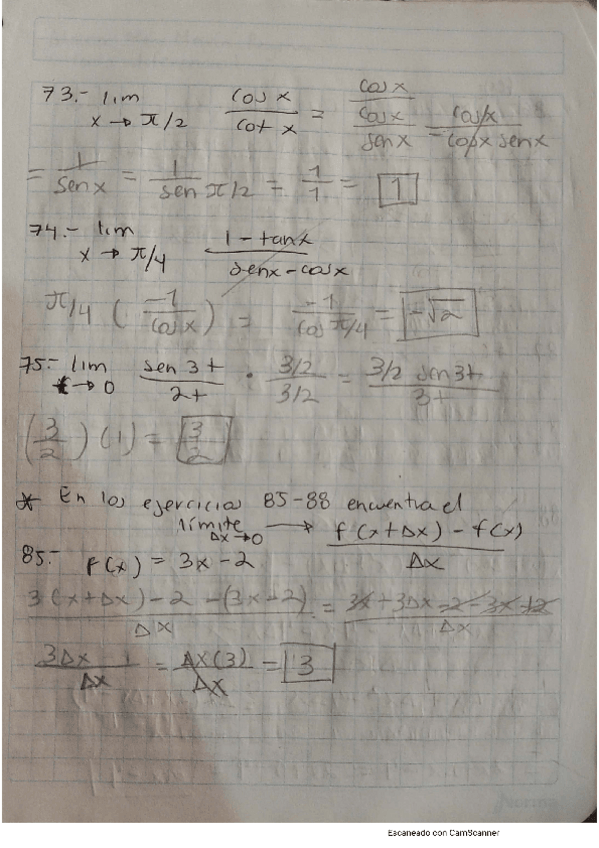 73.- lim x → π/2 cos x / cot x = cos x / (cos x / sen x) = cos x / cos x sen x
= 1 / sen x = 1 / sen π/2 = 1/1 = 1
74.- lim x → π/4 1 - tan x / sen x - cos x
π/4 ( -1 / cos x ) = -1 / cos π/4 = -√2
75.- lim t → 0 sen 3t / 2t • 3/2 / 3/2 = 3/2 sen 3t / 3t
(3/2) (1) = 3/2
* En los ejercicios 85-88 encuentra el
límite Δx → 0 → f(x + Δx) - f(x) / Δx
85.- f(x) = 3x - 2
3(x + Δx) - 2 - (3x - 2) / Δx = 3x + 3Δx - 2 - 3x + 2 / Δx
3Δx / Δx = Δx (3) / Δx = 3
Norma
Escaneado con CamScanner